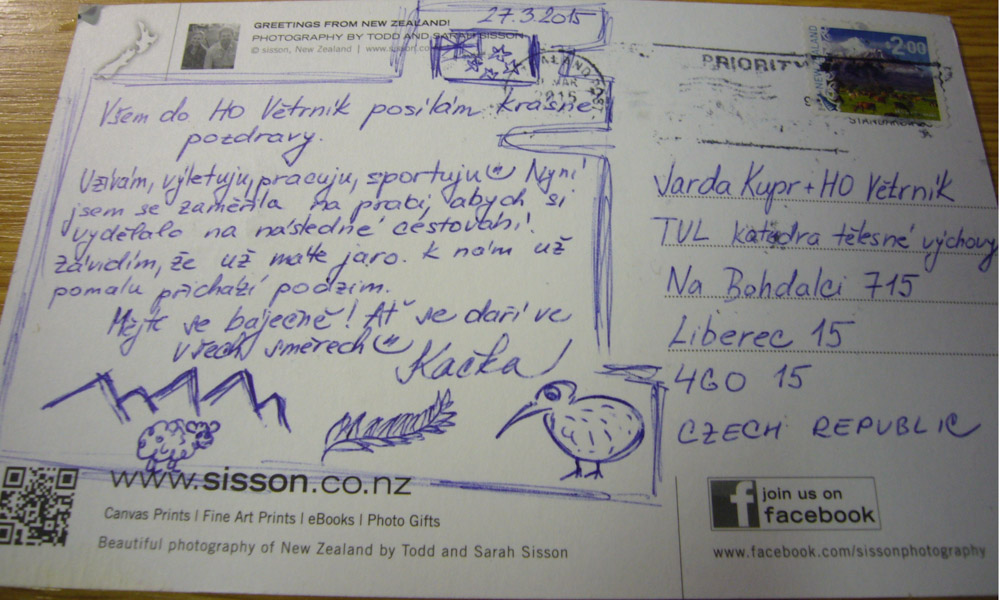 GREETINGS FROM NEW ZEALAND!
PHOTOGRAPHY BY TODD AND SARAH SISSON
© sisson, New Zealand | www.sisson.co
27.3.2015
PRIORITY
$2.00
NEW ZEALAND
Všem do HO Větrník posílám krásné
pozdravy.
Užívám, výletuju, pracuju, sportuju Nyní
jsem se zaměřila na práci, abych si
vydělala na následné cestování!
Závidím, že už máte jaro. K nám už
pomalu přichází podzim.
Mějte se báječně! Ať se daří ve
všech směrech
Kačka!
Jarda Kupr + HO Větrník
TUL katedra tělesné výchovy
Na Bohdalci 715
Liberec 15
460 15
CZECH REPUBLIC
www.sisson.co.nz
Canvas Prints | Fine Art Prints | eBooks | Photo Gifts
Beautiful photography of New Zealand by Todd and Sarah Sisson
f join us on
facebook
www.facebook.com/sissonphotography